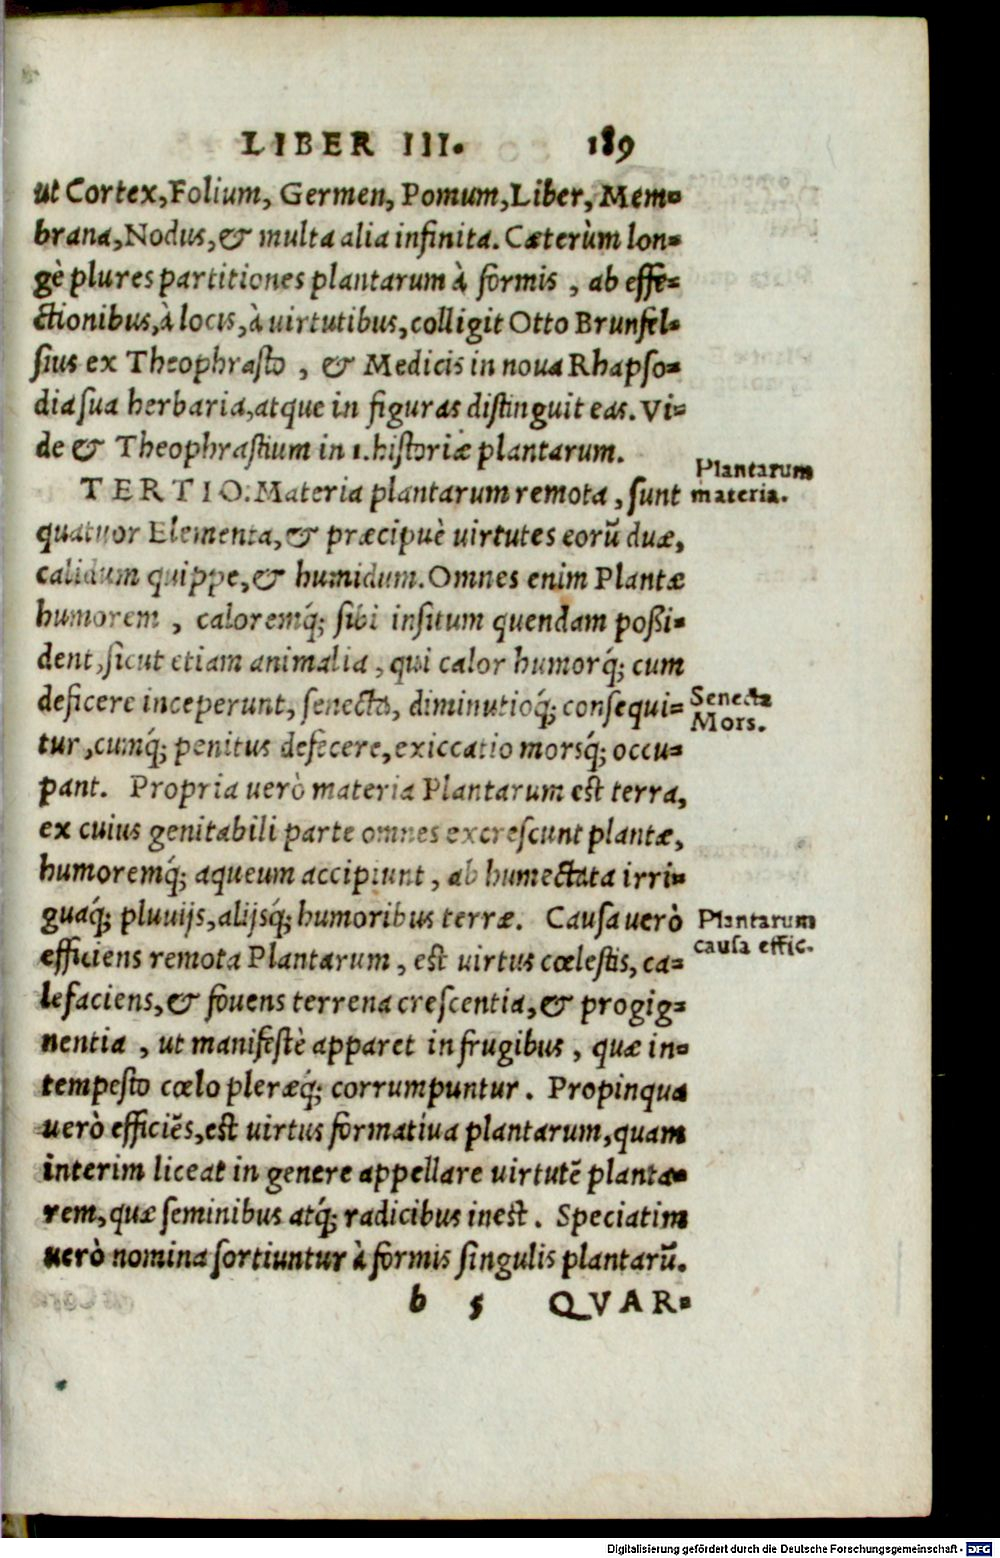 LIBER III. 189
ut Cortex, Folium, Germen, Pomum, Liber, Mem-
brana, Nodus, & multa alia infinita. Cæterùm lon-
gè plures partitiones plantarum à formis, ab effe-
ctionibus, à locis, à uirtutibus, colligit Otto Brunfel-
sius ex Theophrasto, & Medicis in noua Rhapso-
dia sua herbaria, atque in figuras distinguit eas. Vi-
de & Theophrastium in 1. historiæ plantarum.
TERTIO. Materia plantarum remota, sunt
Plantarum
materia.
quatuor Elementa, & præcipuè uirtutes eorũ duæ,
calidum quippe, & humidum. Omnes enim Plantæ
humorem, caloremq́; sibi insitum quendam poßi-
dent, sicut etiam animalia, qui calor humorq́; cum
deficere inceperunt, senecta, diminutioq́; consequi-
Senecta
Mors.
tur, cumq́; penitus defecere, exiccatio morsq́; occu-
pant. Propria uerò materia Plantarum est terra,
ex cuius genitabili parte omnes excrescunt plantæ,
humoremq́; aqueum accipiunt, ab humectata irri-
guaq́; pluuijs, alijsq́; humoribus terræ. Causa uerò
Plantarum
causa effic.
efficiens remota Plantarum, est uirtus cœlestis, ca-
lefaciens, & fouens terrena crescentia, & progig-
nentia, ut manifestè apparet in frugibus, quæ in-
tempesto cœlo pleræq́; corrumpuntur. Propinqua
uerò efficiẽs, est uirtus formatiua plantarum, quam
interim liceat in genere appellare uirtutẽ planta-
rem, quæ seminibus atq́; radicibus inest. Speciatim
uerò nomina sortiuntur à formis singulis plantarũ.
b 5 QVAR-
Digitalisierung gefördert durch die Deutsche Forschungsgemeinschaft - DFG